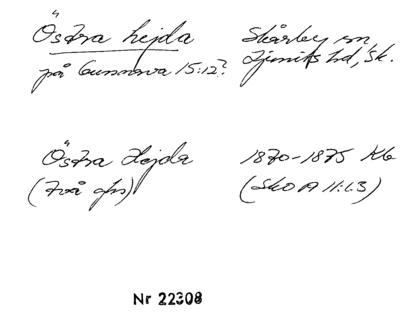 Östra Hejda Skårby sn
på Gunnarva 15:12? Ljunits hd, Sk.
Östra Hejda 1870-1875 Kb
(två ghs) (SkoA II:1.3)
Nr 22308